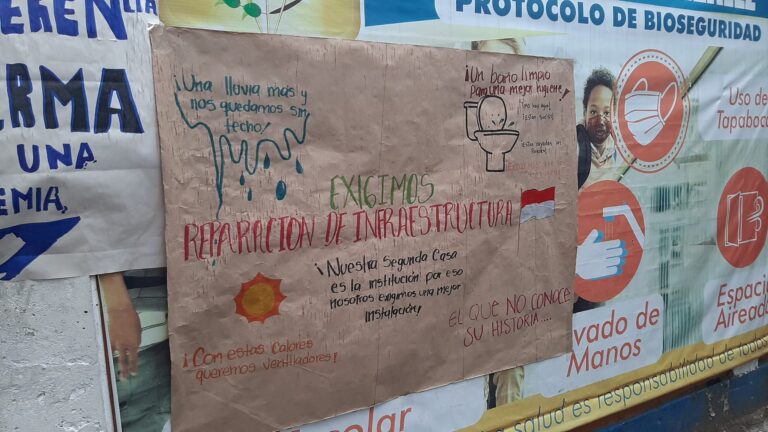 EREN
ERMA
UNA
EMIA,
PROTOCOLO DE BIOSEGURIDAD
¡Una lluvia más y
nos quedamos sin
techo!
¡Un baño limpio
para una mejor higiene!
EXIGIMOS
REPARACIÓN DE INFRAESTRUCTURA
¡Nuestra Segunda Casa
es la institución por eso
nosotros exigimos una mejor
instalación!
¡Con estas calores
queremos ventiladores!
EL QUE NO CONOCE
SU HISTORIA...
Uso de
Tapaboca
vado de
Manos
Espacio
Airead
scolar
salud es responsabilidad de todos